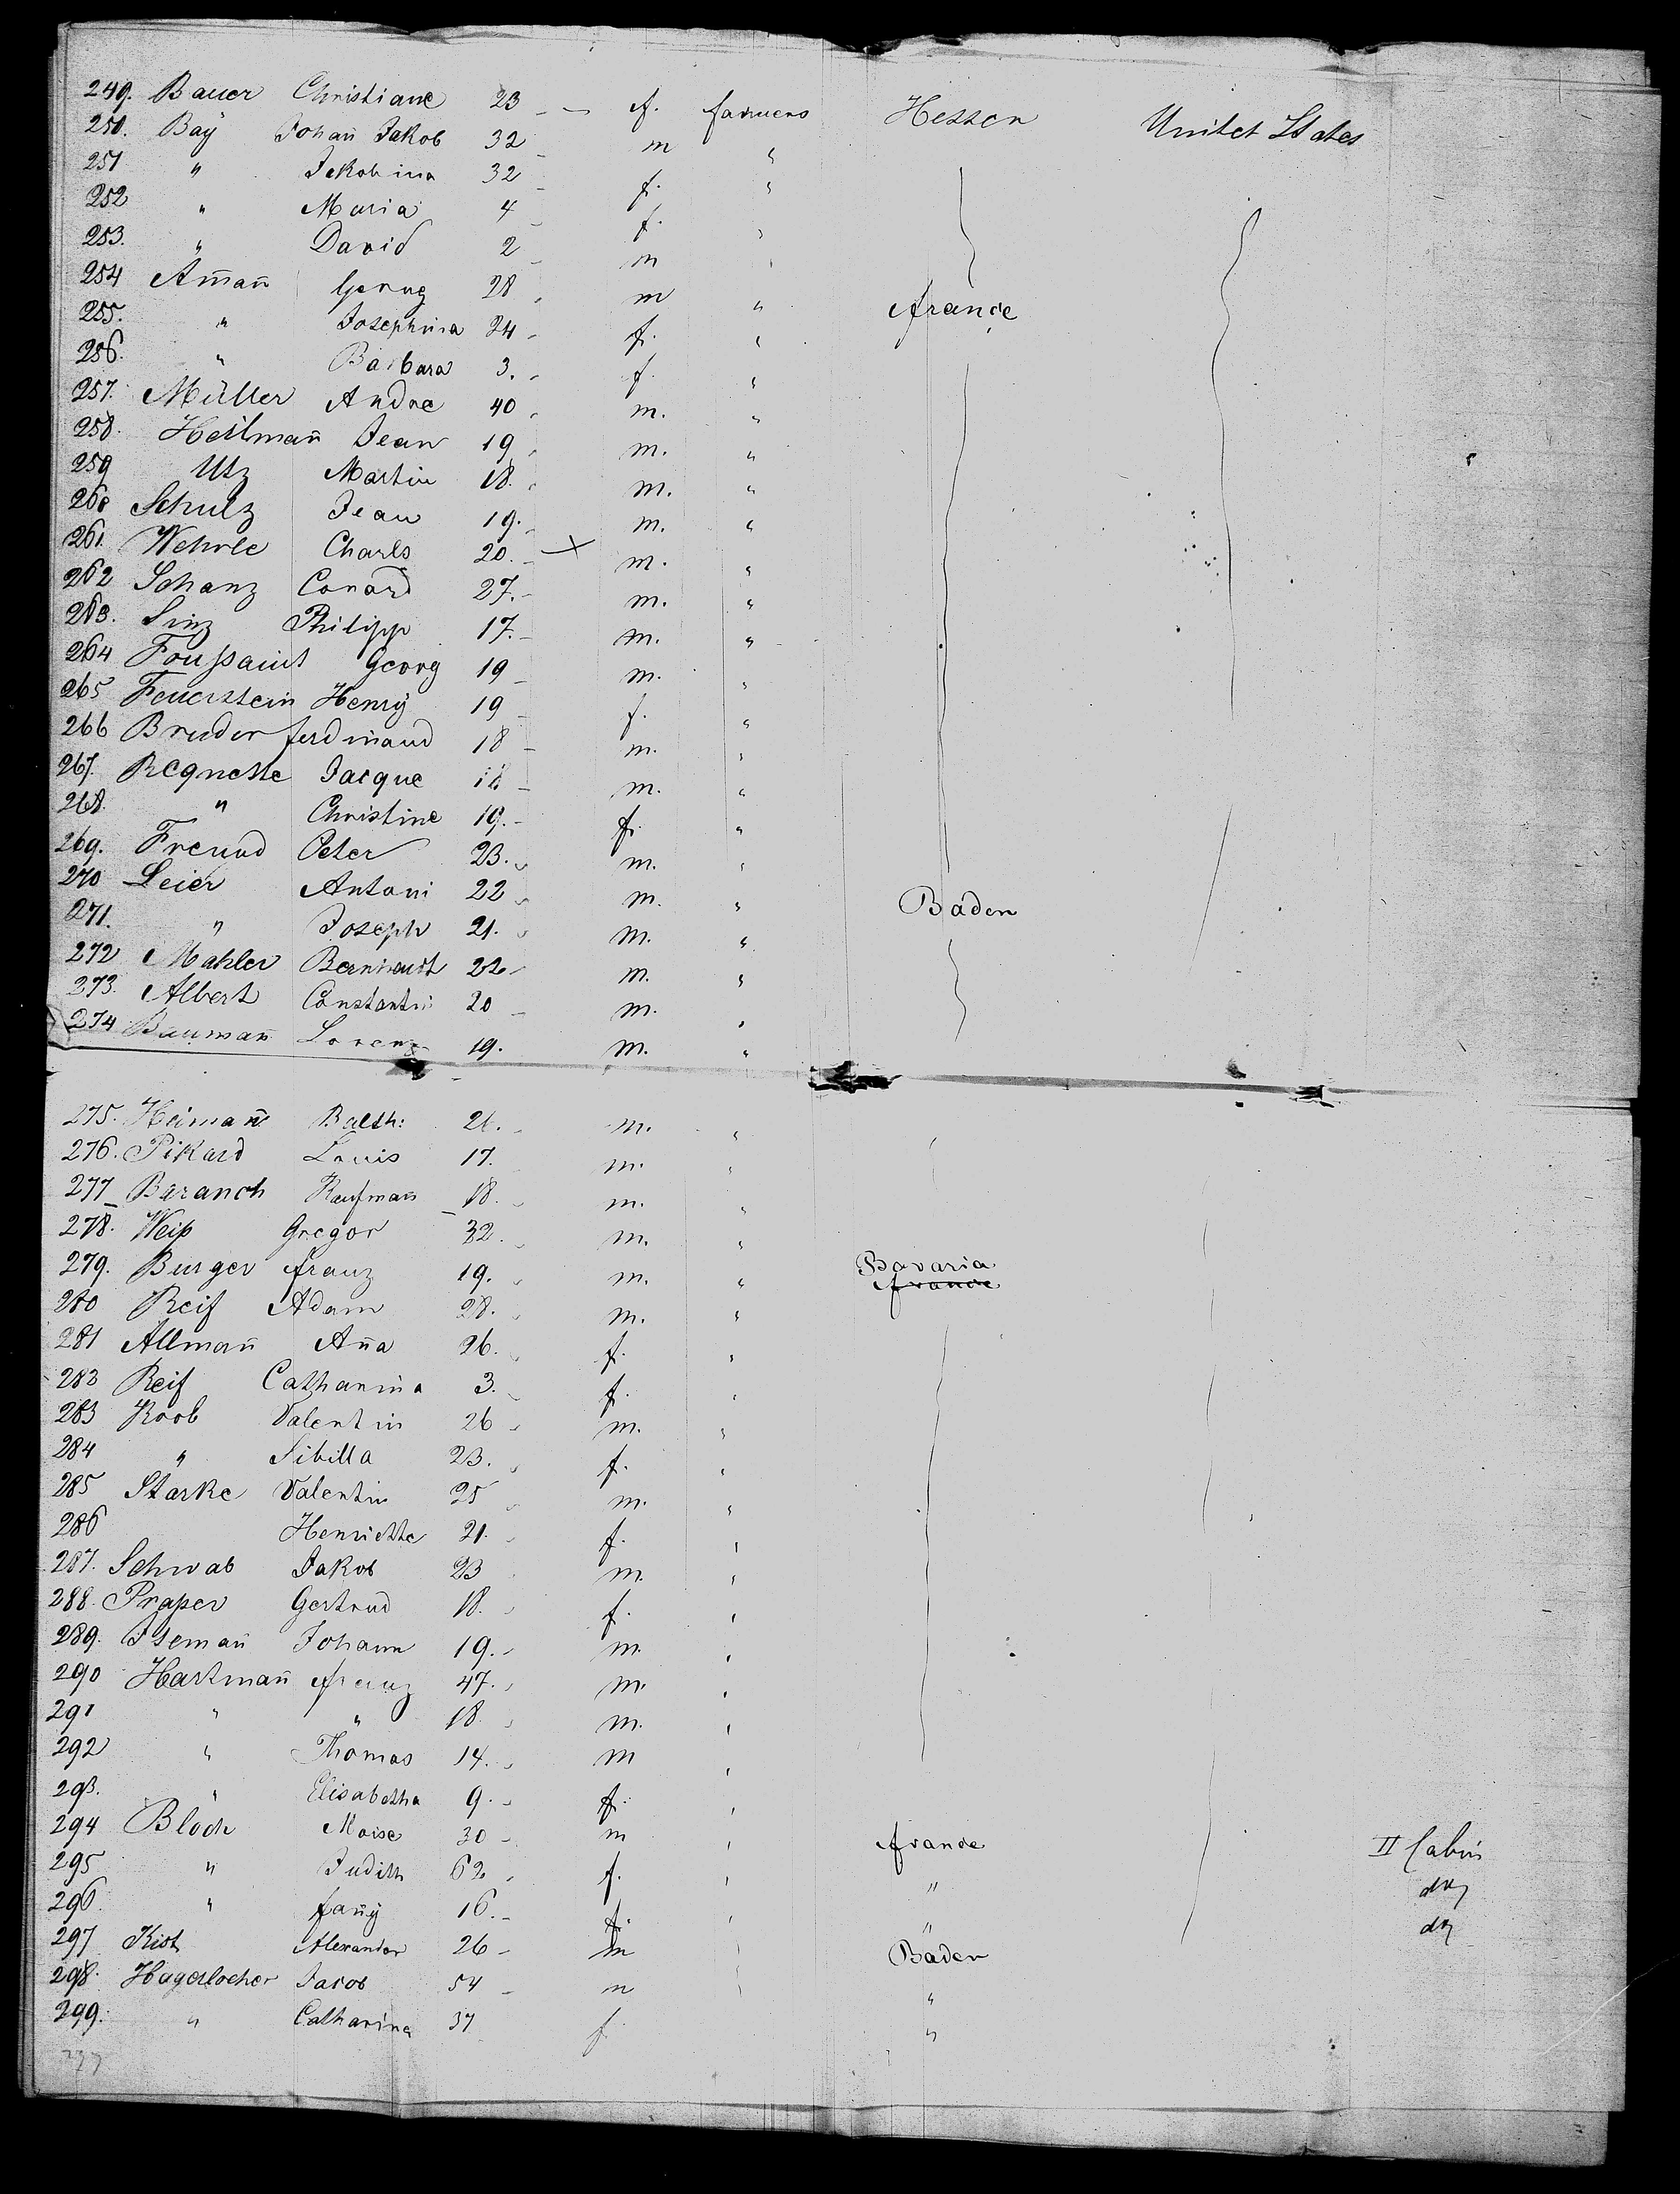 249. Bauer Christiane 23 - - f. farmers Hessen Unitet States
250. Baÿ Johan̄ Jakob 32 - m "
251 " Jakobina 32 - f. "
252 " Maria 4 - f. "
253. " David 2 - m "
254 Am̄an̄ Georg 28 - m " france
255. " Josephina 24 - f. "
256. " Barbara 3. - f. "
257. Müller Andre 40 - m. "
258. Heilman̄ Jean 19 - m. "
259 Utz Martin 18. - m. "
260 Schulz Jean 19. - m. "
261. Wehrle Charls 20. - X m. "
262 Schanz Conard 27. - m. "
263. Sinz Philipp 17. - m. "
264 Toussaint Georg 19 - m. "
265 Feuerstein Henrÿ 19 - f. "
266 Bruder ferdinand 18 - m. "
267. Regnette Jacque - m. "
268. " Christine 19. - f. "
269. Freund Peter 23. - m. "
270 Leier Antoni 22 - m. " Baden
271. " Joseph 21. - m. "
272 Mahler Bernhardt 22 - m. "
273. Albert Constantin 20 - m. "
274 Bauman̄ Lorenz 19. m. "
275. Heiman̄ Balth: 21. - m. "
276. Pikard Louis 17. m. "
277 Baranch Kaufman̄ 18. - m. "
278. Weiß Gregor 32. - m. "
279. Burger franz 19. - m. " Bavaria
france
280 Reif Adam 28. - m. "
281 Allman̄ An̄a 26. - f. "
282 Reif Catharina 3. - f. "
283 Koob Valentin 26 - m. "
284 " Sibilla 23. - f. "
285 Starke Valentin 25 - m. "
286 Henriette 21. - f. "
287. Schwab Jakob 23 m. "
288. Praper Gertrud 18. - f. "
289. Iseman̄ Johann 19. - m. "
290 Hartman̄ franz 47. - m. "
291 " " 18. - m. "
292 " Thomas 14. - m "
293. " Elisabetha 9. - f. "
294 Bloch Moise 30 - m " france II Cabin
295 " Judith 62 - f. " " do
296. " fan̄ÿ 16. - f. " " do
297 Kist Alexander 26 - m " Baden
298. Hagerlocher Jacob 54 - m " "
299. " Catharina 37 f. "